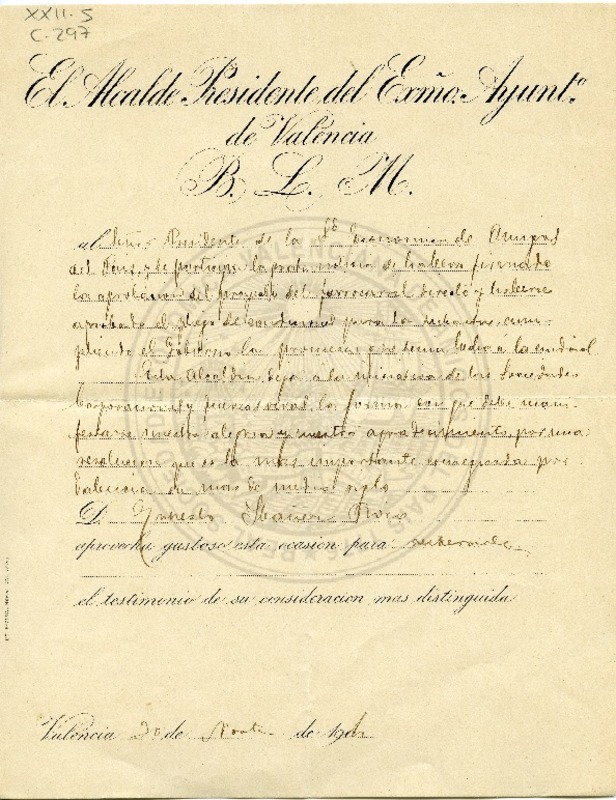 XXII-5
C-297
El Alcalde Presidente del Exmo. Ayunt.º
de Valencia
B. L. M.
al Señor Presidente de la Rl Económica de Amigos
del País, y se participa la grata noticia de haberse firmado
la aprobación del proyecto del ferrocarril directo y haberse
aprobado el pliego de condiciones para la subasta, cum-
pliendo el Gobierno la promesa que tenía hecha a la ciudad
Esta Alcaldía deja a la iniciativa de las Sociedades
Corporaciones y particulares, la forma con que debe mani-
festarse nuestra alegría y nuestro agradecimiento, por una
resolución que es la mas importante conseguida por
Valencia de mas de medio siglo
D. Ernesto Ibañez Rico
aprovecha gustoso esta ocasión para reiterarle
el testimonio de su consideración mas distinguida
Valencia 20 de de 19